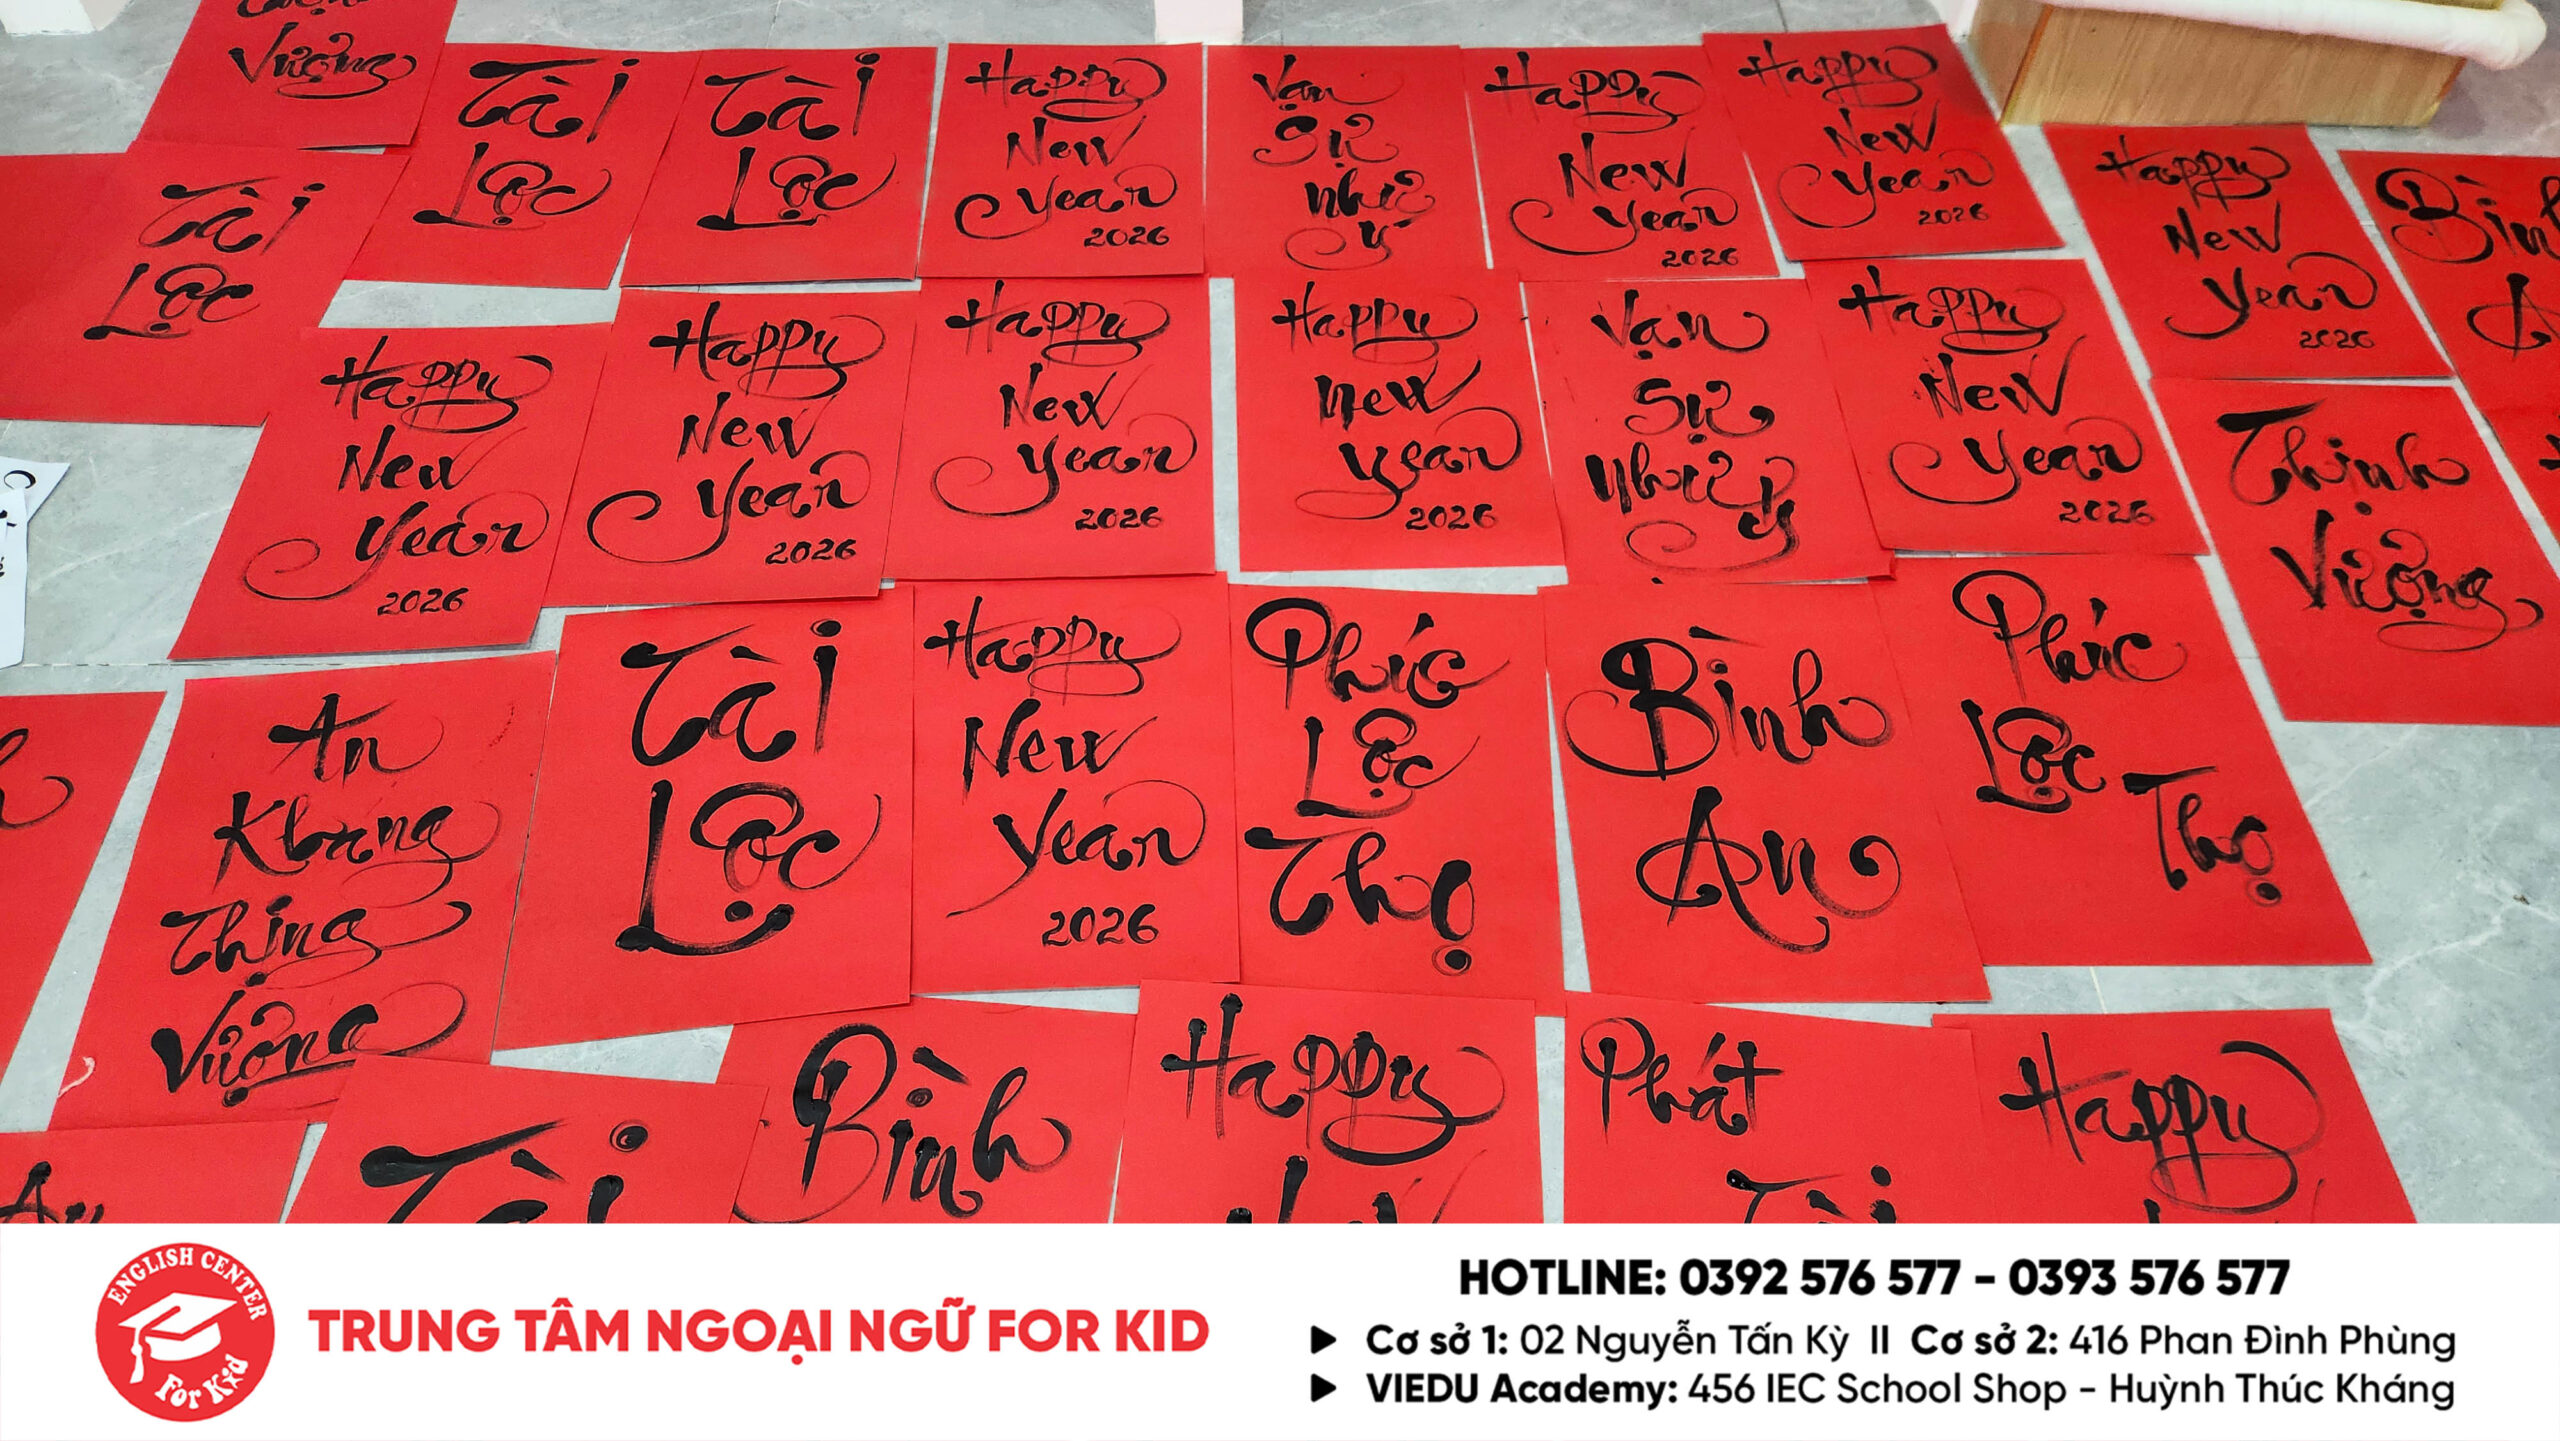 Vượng
Tài
Lộc
Tài
Lộc
Happy
New
Year
2026
Vạn
Sự
Như
Ý
Happy
New
Year
2026
Happy
New
Year
2026
Happy
New
Year
2026
Bình
A
Tài
Lộc
Happy
New
Year
2026
Happy
New
Year
2026
Happy
New
Year
2026
Happy
New
Year
2026
Vạn
Sự
Như Ý
Happy
New
Year
2026
Thịnh
Vượng
An
Khang
Thịng
Vượng
Tài
Lộc
Happy
New
Year
2026
Phúc
Lộc
Thọ
Bình
An
Phúc
Lộc
Thọ
An
Tài
Bình
Happy
New
Phát
Tài
Happy
ENGLISH CENTER
For Kid
TRUNG TÂM NGOẠI NGỮ FOR KID
HOTLINE: 0392 576 577 - 0393 576 577
Cơ sở 1: 02 Nguyễn Tấn Kỳ II Cơ sở 2: 416 Phan Đình Phùng
VIEDU Academy: 456 IEC School Shop - Huỳnh Thúc Kháng